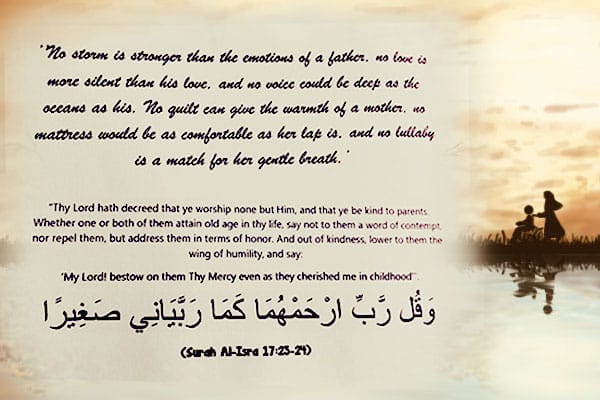 "No storm is stronger than the emotions of a father, no love is
more silent than his love, and no voice could be deep as the
oceans as his. No quilt can give the warmth of a mother, no
mattress would be as comfortable as her lap is, and no lullaby
is a match for her gentle breath."
"Thy Lord hath decreed that ye worship none but Him, and that ye be kind to parents.
Whether one or both of them attain old age in thy life, say not to them a word of contempt,
nor repel them, but address them in terms of honor. And out of kindness, lower to them the
wing of humility, and say:
'My Lord! bestow on them Thy Mercy even as they cherished me in childhood'".
وَقُل رَّبِّ ارْحَمْهُمَا كَمَا رَبَّيَانِي صَغِيرًا
(Surah Al-Isra 17:23-24)